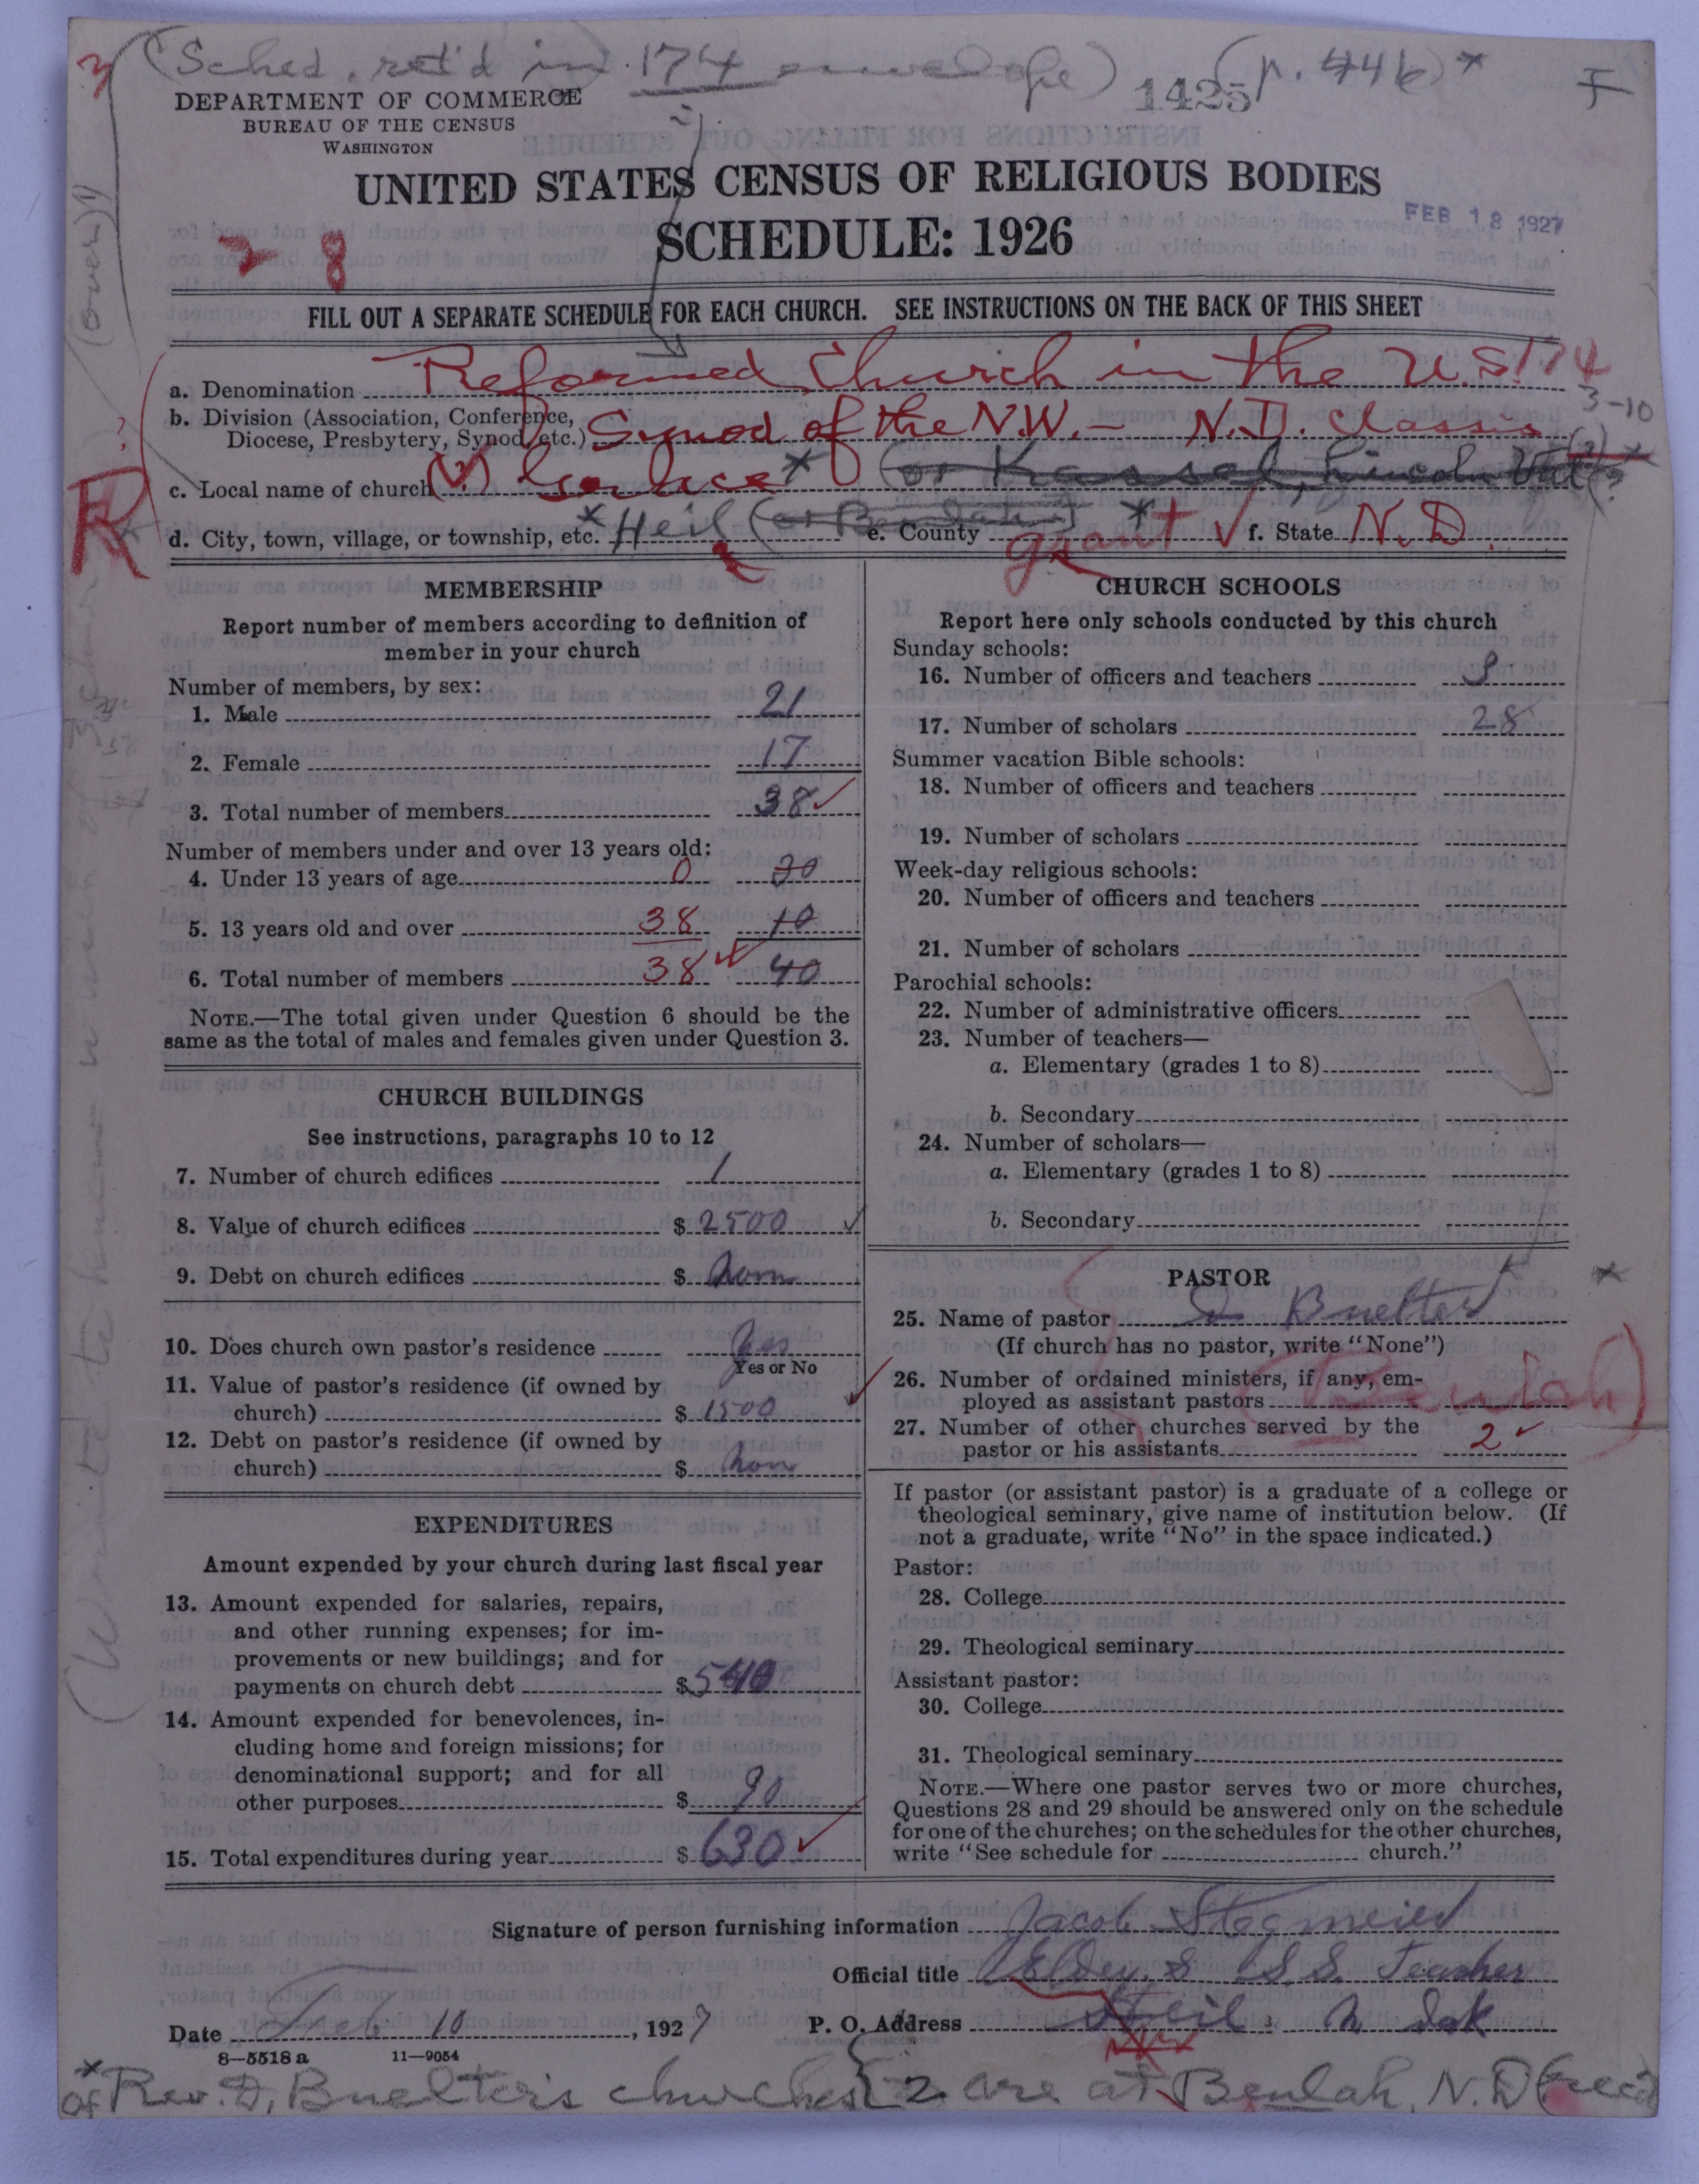 (Sched. ret'd in 174 envelope) 1425 (p. 446)* F
DEPARTMENT OF COMMERCE
BUREAU OF THE CENSUS
WASHINGTON
UNITED STATES CENSUS OF RELIGIOUS BODIES
SCHEDULE: 1926
FEB 18 1927
8
(over)
FILL OUT A SEPARATE SCHEDULE FOR EACH CHURCH. SEE INSTRUCTIONS ON THE BACK OF THIS SHEET
a. Denomination Reformed Church in the U.S. 174
3-10
b. Division (Association, Conference,
Diocese, Presbytery, Synod, etc.) Synod of the N.W. – N.D. Classis
c. Local name of church (?) * (or Kassel, Lincoln Val
R
d. City, town, village, or township, etc. * Heil (or Beulah) e. County * Grant f. State N.D.
MEMBERSHIP
Report number of members according to definition of
member in your church
Number of members, by sex:
1. Male 21
2. Female 17
3. Total number of members 38
Number of members under and over 13 years old:
4. Under 13 years of age 0 30
5. 13 years old and over 38 10
6. Total number of members 38 40
NOTE.—The total given under Question 6 should be the
same as the total of males and females given under Question 3.
CHURCH BUILDINGS
See instructions, paragraphs 10 to 12
7. Number of church edifices 1
8. Value of church edifices $ 2500
9. Debt on church edifices $ non
10. Does church own pastor's residence Yes
Yes or No
11. Value of pastor's residence (if owned by
church) $ 1500
12. Debt on pastor's residence (if owned by
church) $ non
EXPENDITURES
Amount expended by your church during last fiscal year
13. Amount expended for salaries, repairs,
and other running expenses; for im-
provements or new buildings; and for
payments on church debt $ 540
14. Amount expended for benevolences, in-
cluding home and foreign missions; for
denominational support; and for all
other purposes $ 90
15. Total expenditures during year $ 630
CHURCH SCHOOLS
Report here only schools conducted by this church
Sunday schools:
16. Number of officers and teachers
17. Number of scholars 28
Summer vacation Bible schools:
18. Number of officers and teachers
19. Number of scholars
Week-day religious schools:
20. Number of officers and teachers
21. Number of scholars
Parochial schools:
22. Number of administrative officers
23. Number of teachers—
a. Elementary (grades 1 to 8)
b. Secondary
24. Number of scholars—
a. Elementary (grades 1 to 8)
b. Secondary
PASTOR
25. Name of pastor D Buelter *
(If church has no pastor, write "None")
(Beulah)
26. Number of ordained ministers, if any, em-
ployed as assistant pastors
27. Number of other churches served by the
pastor or his assistants 2
If pastor (or assistant pastor) is a graduate of a college or
theological seminary, give name of institution below. (If
not a graduate, write "No" in the space indicated.)
Pastor:
28. College
29. Theological seminary
Assistant pastor:
30. College
31. Theological seminary
NOTE.—Where one pastor serves two or more churches,
Questions 28 and 29 should be answered only on the schedule
for one of the churches; on the schedules for the other churches,
write "See schedule for church."
Signature of person furnishing information Jacob Stegmeier
Official title Elder & S.S. Teacher
Date Feb 10, 1927 P. O. Address Heil N Dak
8—5518 a 11—9054
* of Rev. D. Buelter's churches 2 are at Beulah, N.D.